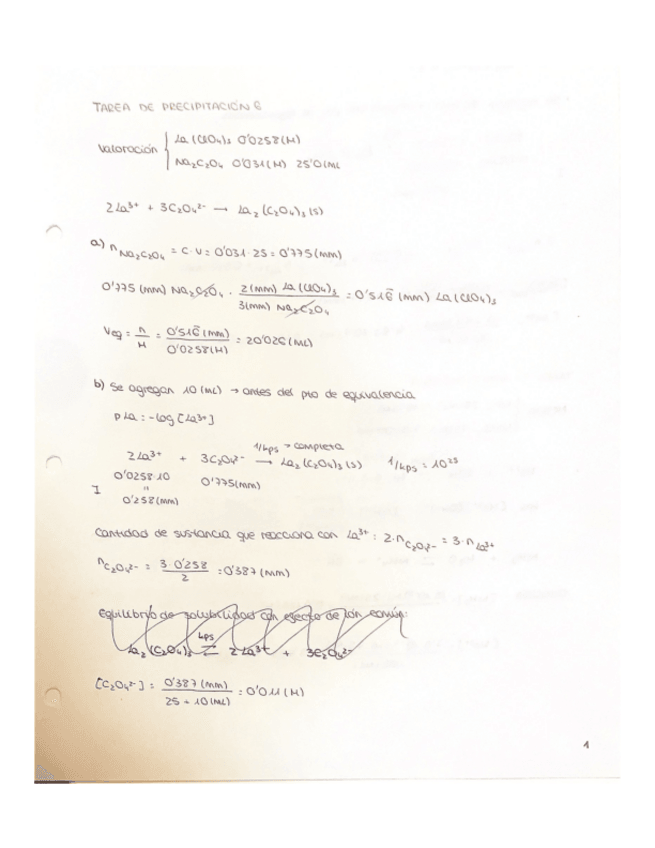 TAREA DE PRECIPITACIÓN 2
Valoración { La(ClO4)3 0'0258(M)
Na2C2O4 0'031(M) 25'0(mL
2La³⁺ + 3C2O4²⁻ → La2(C2O4)3(s)
a) nNa2C2O4 = C·V = 0'031·25 = 0'775(mm)
0'775 (mm) Na2C2O4 · 2(mm) La(ClO4)3 / 3(mm) Na2C2O4 = 0'516̄ (mm) La(ClO4)3
Veq = n/M = 0'516̄ (mm) / 0'0258(M) = 20'026(mL)
b) Se agregan 10(mL) → antes del pto de equivalencia
pLa = -log[La³⁺]
1/kps → completa
2La³⁺ + 3C2O4²⁻ → La2(C2O4)3(s) 1/kps = 10²⁵
0'0258·10 0'775(mm)
I "
0'258(mm)
Cantidad de sustancia que reacciona con La³⁺: 2·nC2O4²⁻ = 3·nLa³⁺
nC2O4²⁻ = 3·0'258 / 2 = 0'387(mm)
Equilibrio de solubilidad con efecto de ión común:
La2(C2O4)3 ⇄ kps 2La³⁺ + 3C2O4²⁻
[C2O4²⁻] = 0'387(mm) / 25 + 10(mL) = 0'011(M)
1